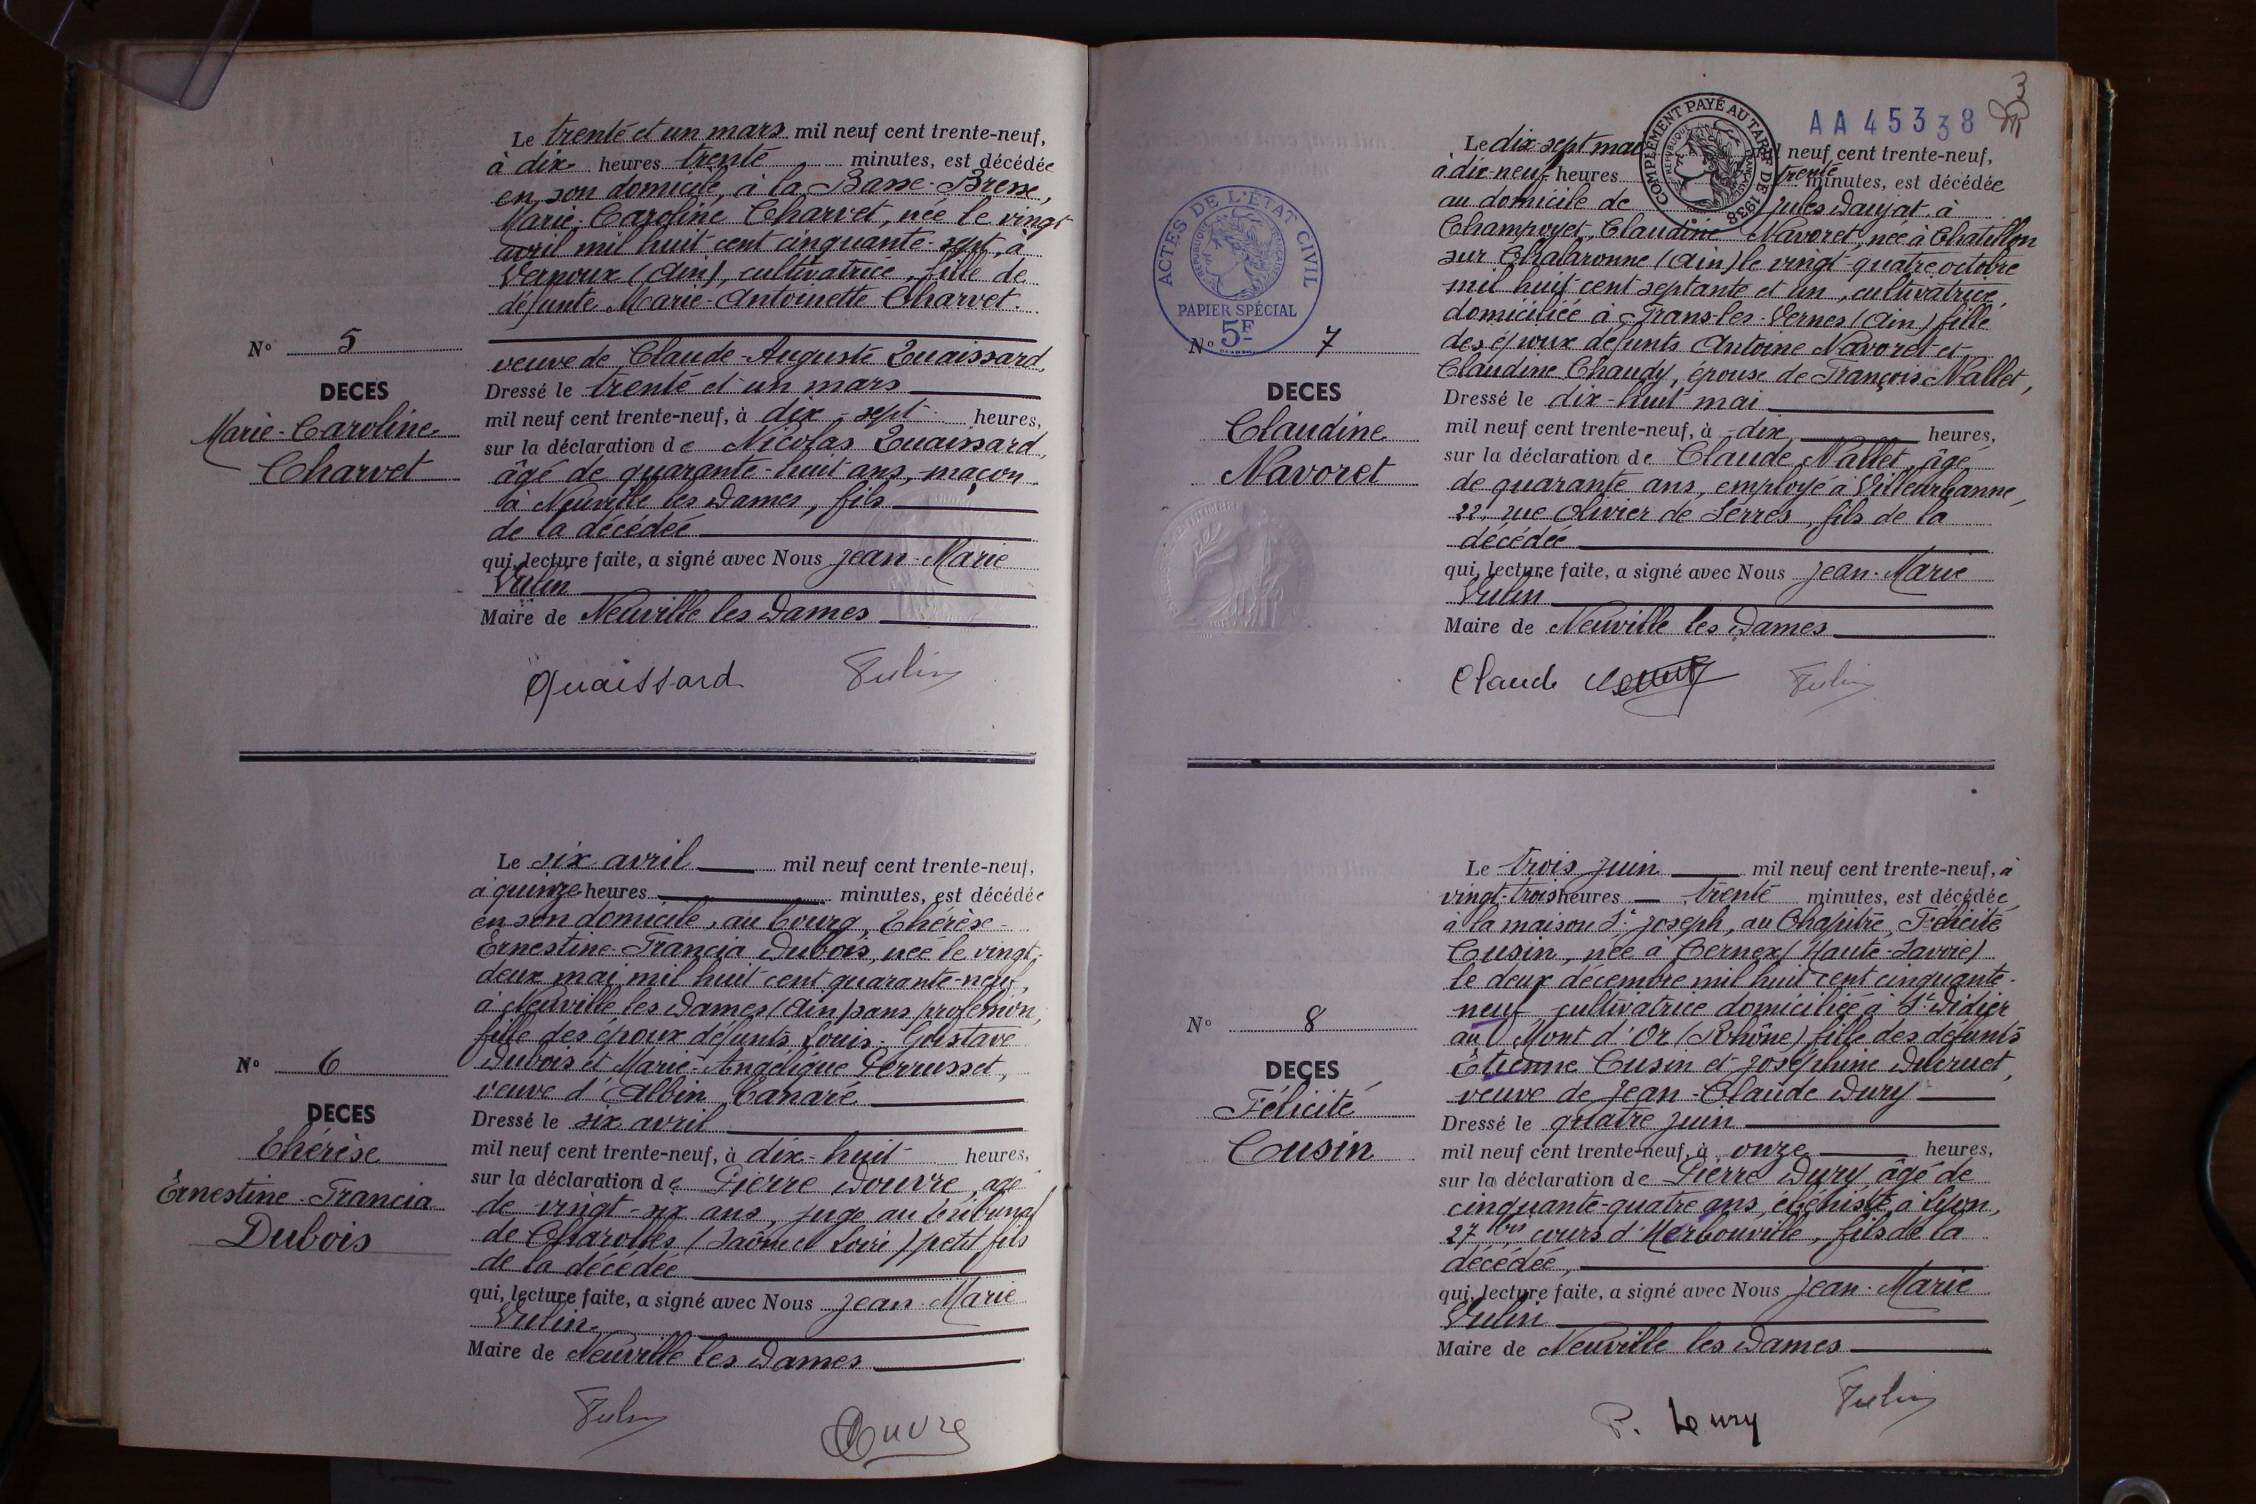 Le trente et un mars mil neuf cent trente-neuf,
à dix heures trente minutes, est décédée
en son domicile, à la Basse-Bresse,
Marie-Caroline Charvet, née le vingt
avril mil huit cent cinquante-sept, à
Vernoux (Ain), cultivatrice, fille de
défunte Marie-Antoinette Charvet.
N° 5
veuve de Claude-Auguste Quaissard,
DECES
Dressé le trente et un mars
Marie-Caroline
mil neuf cent trente-neuf, à dix-sept heures,
Charvet
sur la déclaration de Nicolas Quaissard,
âgé de quarante-huit ans, maçon
à Neuville les Dames, fils
de la décédée
qui, lecture faite, a signé avec Nous Jean-Marie
Vulin
Maire de Neuville les Dames
Quaissard Vulin
Le six avril mil neuf cent trente-neuf,
à quinze heures minutes, est décédée
en son domicile, au bourg, Thérèse-
Ernestine-Francia Dubois, née le vingt-
deux mai mil huit cent quarante-neuf,
à Neuville les Dames (Ain) sans profession,
fille des époux défunts Louis-Gustave
N° 6
Dubois et Marie-Angélique Perrusset,
veuve d'Albin Canaré
DECES
Dressé le six avril
Thérèse
mil neuf cent trente-neuf, à dix-huit heures,
Ernestine-Francia
sur la déclaration de Pierre Douvre, âgé
Dubois
de vingt-six ans, juge au tribunal
de Charolles (Saône et Loire) petit fils
de la décédée
qui, lecture faite, a signé avec Nous Jean-Marie
Vulin
Maire de Neuville les Dames
Vulin Douvre
3
AA 45338
COMPLÉMENT PAYÉ AU TARIF DE 1938
RÉPUBLIQUE FRANÇAISE
Le dix-sept mai mil neuf cent trente-neuf,
à dix-neuf heures trente minutes, est décédée
au domicile de Jules Daujat, à
Champoyet, Claudine Navoret, née à Chatillon
sur Chalaronne (Ain) le vingt-quatre octobre
mil huit cent septante et un, cultivatrice,
domiciliée à Srans-les-Vernes (Ain) fille
des époux défunts Antoine Navoret et
Claudine Chaudy, épouse de François Nallet,
ACTES DE L'ÉTAT CIVIL
PAPIER SPÉCIAL
5F
N° 7
DECES
Dressé le dix-huit mai
Claudine
mil neuf cent trente-neuf, à dix heures,
Navoret
sur la déclaration de Claude Nallet, âgé
de quarante ans, employé à Villeurbanne,
22, rue Olivier de Serres, fils de la
décédée
qui, lecture faite, a signé avec Nous Jean-Marie
Vulin
Maire de Neuville les Dames
Claude Vulin
Le trois juin mil neuf cent trente-neuf, à
vingt-trois heures trente minutes, est décédée
à la maison St Joseph, au Chapitre, Félicité
Cusin, née à Cernex (Haute-Savoie)
le deux décembre mil huit cent cinquante-
neuf cultivatrice domiciliée à St Didier
N° 8
au Mont d'Or (Rhône) fille des défunts
Etienne Cusin et Joséphine Ducruet,
DECES
veuve de Jean-Claude Dury
Félicité
Dressé le quatre juin
Cusin
mil neuf cent trente-neuf, à onze heures,
sur la déclaration de Pierre Dury, âgé de
cinquante-quatre ans, ébéniste à Lyon,
27 bis cours d'Herbouville, fils de la
décédée,
qui, lecture faite, a signé avec Nous Jean-Marie
Vulin
Maire de Neuville les Dames
P. Dury Vulin